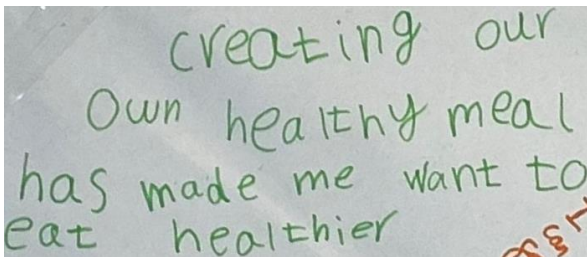 creating our
Own healthy meal
has made me want to
eat healthier